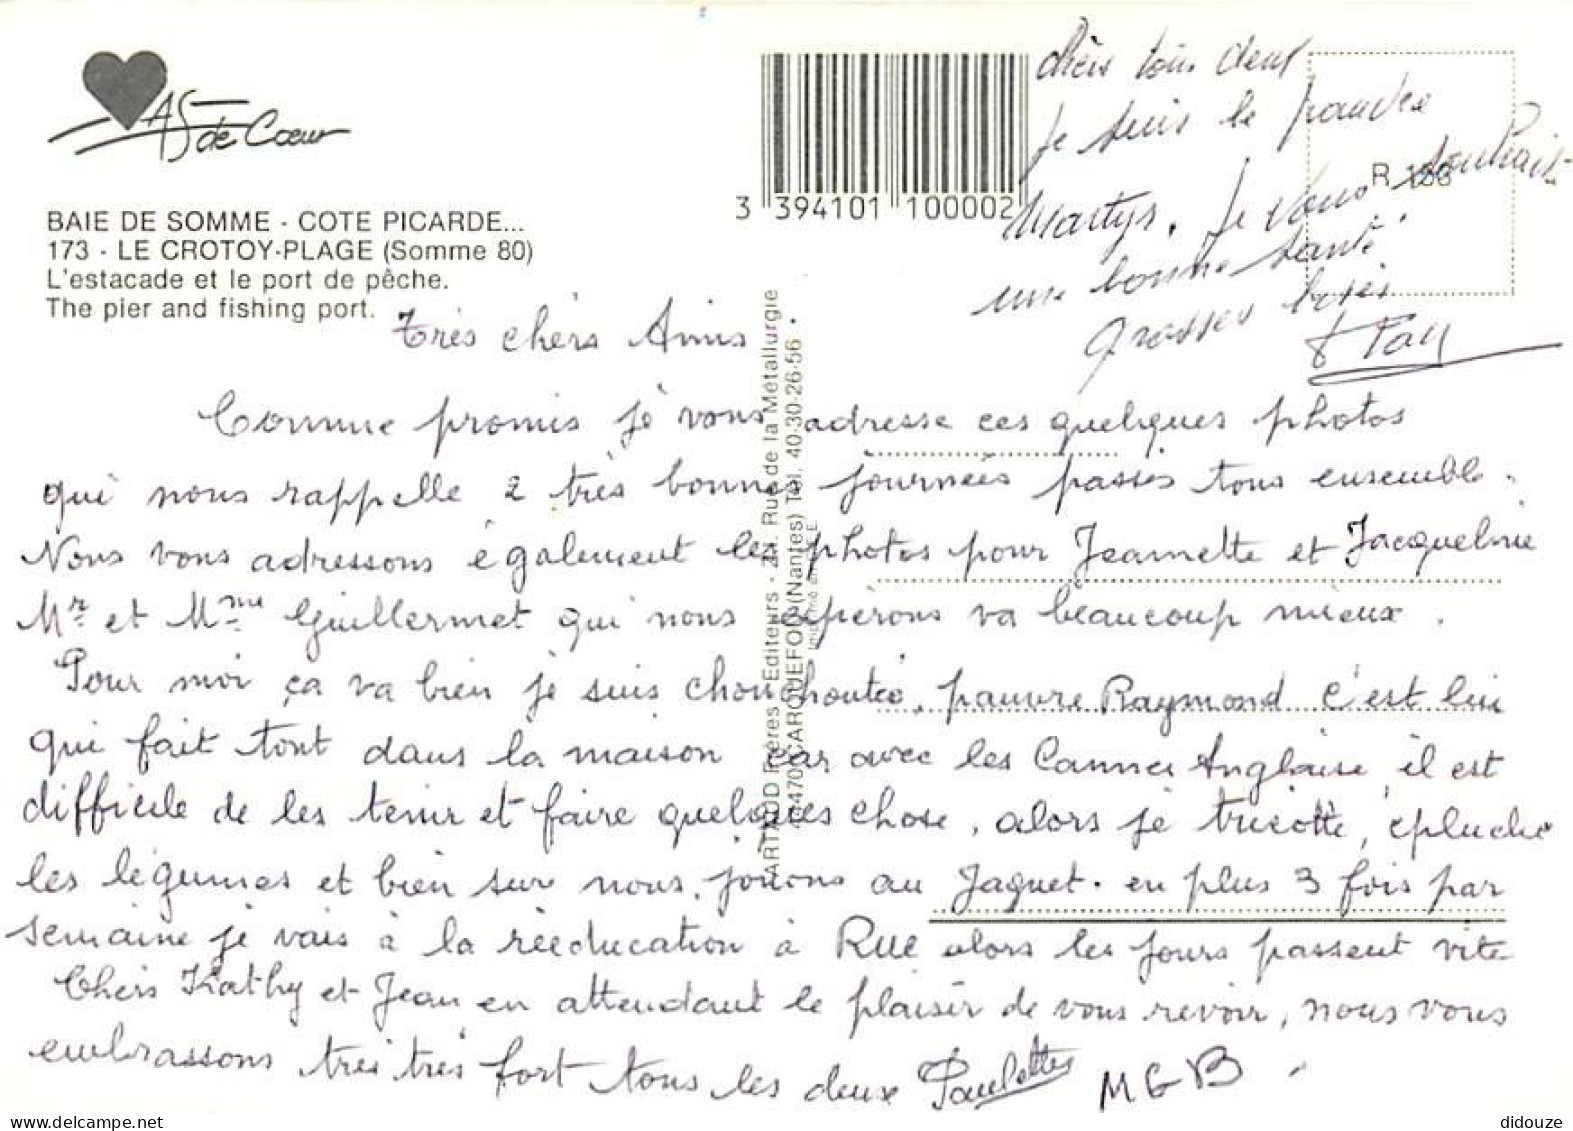 AS de Cœur
BAIE DE SOMME - COTE PICARDE...
173 - LE CROTOY-PLAGE (Somme 80)
L'estacade et le port de pêche.
The pier and fishing port.
3 394101 100002
R 
ARTAUD Frères Editeurs - Z.I. Rue de la Métallurgie
44470 CARQUEFOU (Nantes) Tél. 40-30-26-56
chèrs tous deux
je suis le pauvre
Martyr. Je vous souhait
une bonne santé
grosses bises
Ray
très chèrs Amis
Comme promis je vous adresse ces quelques photos
qui nous rappelle 2 très bonnes journées passés tous ensemble.
Nous vous adressons également les photos pour Jeannette et Jacqueline
Mr et Mme Guillermet qui nous espèrons va beaucoup mieux.
Pour moi ça va bien je suis chouchoutée, pauvre Raymond c'est lui
qui fait tout dans la maison car avec les Cannes Anglaise il est
difficile de les tenir et faire quelques chose, alors je tricotte, épluche
les légumes et bien sur nous jouons au Jaquet. en plus 3 fois par
semaine je vais à la rééducation à RUE alors les jours passent vite
Chèrs Kathy et Jean en attendant le plaisir de vous revoir, nous vous
embrassons très très fort tous les deux Paulette MGB
didouze